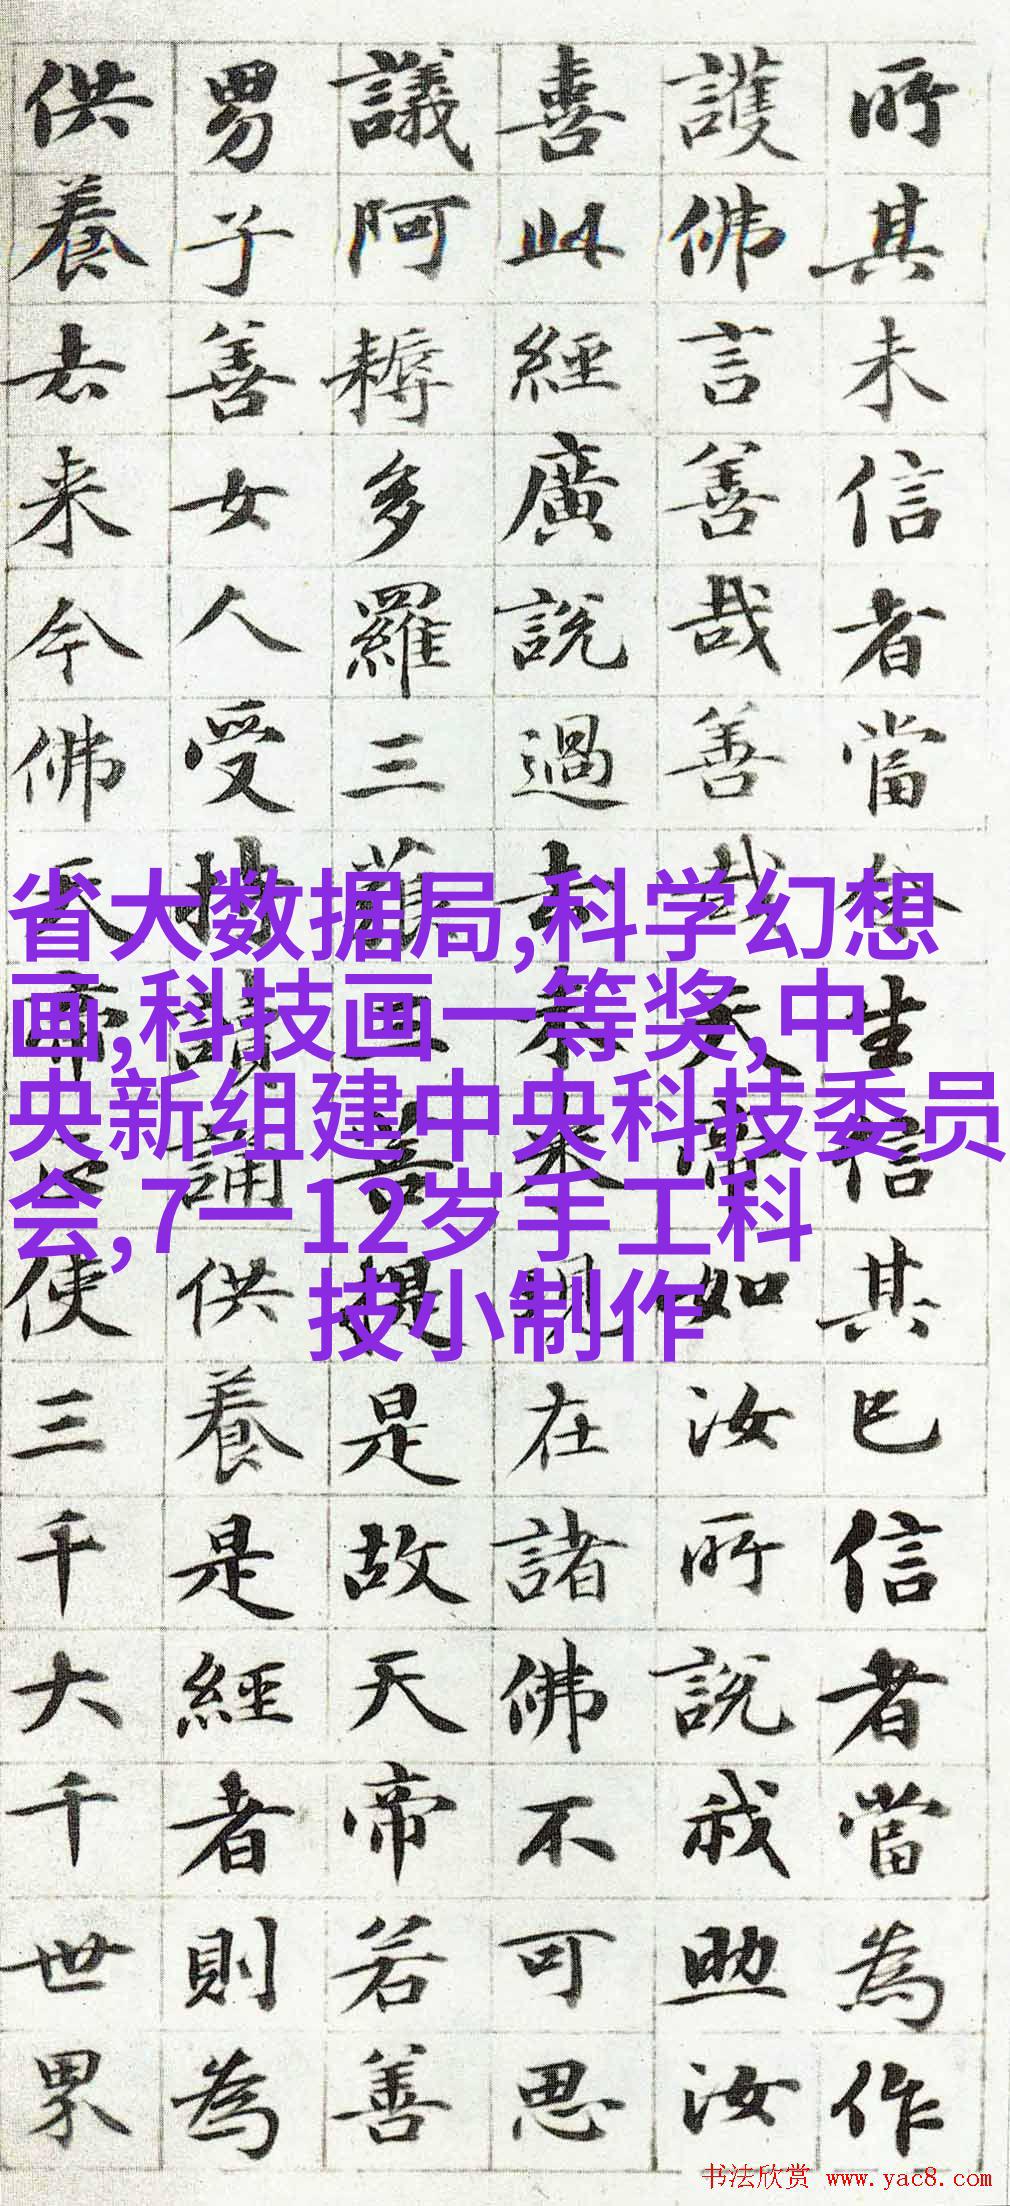 所其未信者當令生信其已信者當為作
護佛言善哉善哉天帝如汝所說我助汝
喜此經廣說過去未來現在諸佛不可思
議阿耨多羅三藐三菩提是故天帝若善
男子善女人受持讀誦供養是經者則為
供養去来今佛天帝正使三千大千世界
省大数据局,科学幻想
画,科技画一等奖,中
央新组建中央科技委员
会,7一12岁手工科
技小制作
书法欣赏 www.yac8.com